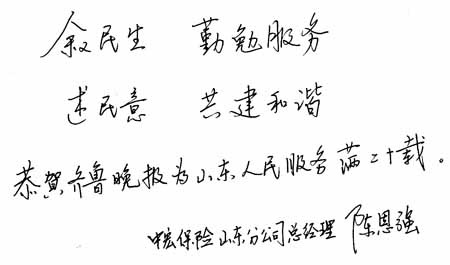 叙民生 勤勉服务
述民意 共建和谐
恭贺齐鲁晚报为山东人民服务满二十载。
中宏保险山东分公司总经理 陈恩强